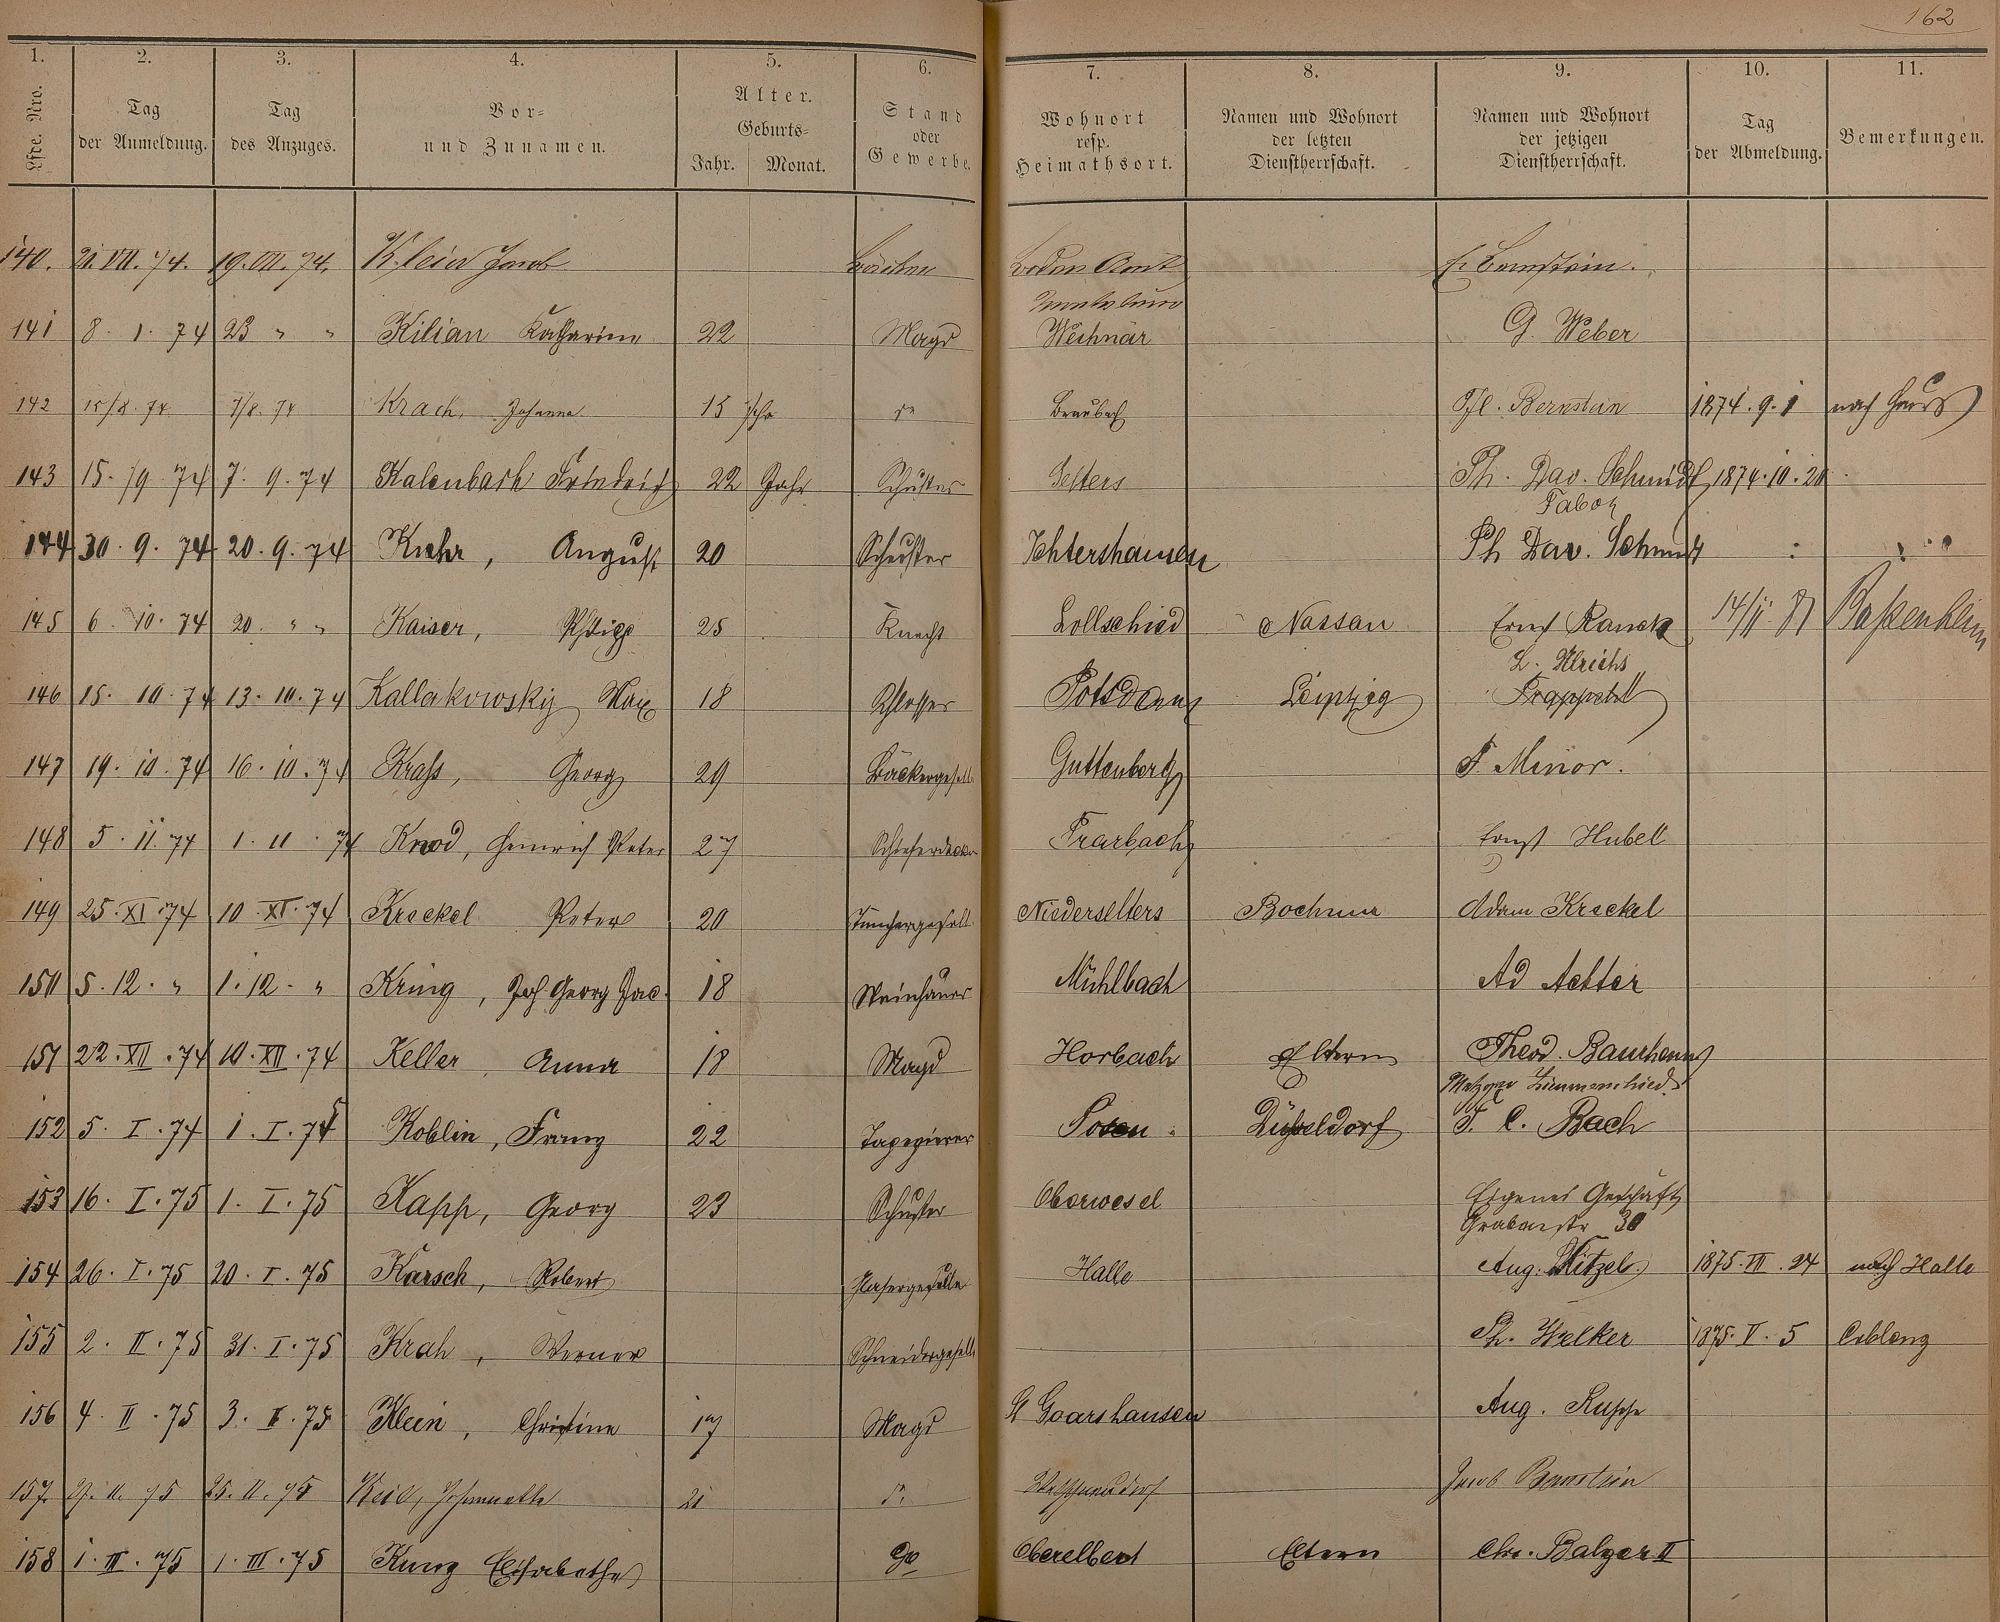 162
1. 2. 3. 4. 5. 6. 7. 8. 9. 10. 11.
Lfde. Nro. Tag der Anmeldung. Tag des Anzuges. Vor- und Zunamen. Alter. Geburts- Jahr. Monat. Stand oder Gewerbe. Wohnort resp. Heimathsort. Namen und Wohnort der letzten Dienstherrschaft. Namen und Wohnort der jetzigen Dienstherrschaft. Tag der Abmeldung. Bemerkungen.
140. 21. VII. 74. 19. VII. 74. Klein Jacob Bernstein.
141 8. 1. 74 23 " " Kilian Katharina 22 Magd Weihnar G. Weber
142 15/8. 74 7/8. 74 Krach, Johanna 15 Jahr do Braubach Bernstein 1874. 9. 1 nach Haus
143 15. /9 74 7. 9. 74 Kalenbach Friedrich 22 Jahr Schuster Selters Ph. Dav. Schmidt 1874. 10. 20
Fabok
144 30. 9. 74 20. 9. 74 Kuhr, August 20 Schuster Ichtershausen Ph Dav. Schmidt
145 6. 10. 74 20. " " Kaiser, Philipp 25 Knecht Lollschied Nassau Ernst Ranck 14/11. 81 Baßenheim
L. Ulrichs
146 15. 10. 74 13. 10. 74 Kallakowsky Max 18 Schlosser Potsdam Leipzig
147 19. 10. 74 16. 10. 74 Krass, Georg 29 Bäckergesell Guttenberg F. Minor.
148 5. 11. 74 1. 11. 74 Knod, Heinrich Peter 27 Schieferdecker Trarbach Ernst Hubell
149 25. XI. 74 10. XI. 74 Kreckel Peter 20 Tünchergesell Niederselters Bochum Adam Kreckel
150 5. 12. " 1. 12. " Kring, Joh. Georg Jac. 18 Steinhauer Mühlbach Ad Aehter
151 22. XII. 74 10. XII. 74 Keller, Anna 18 Magd Horbach Eltern Theod. Baurhenn
Metzger Limmenschied
152 5. I. 74 1. I. 75 Koblin, Franz 22 Tapezierer Posen. Düsseldorf F. C. Bach
153 16. I. 75 1. I. 75 Kapp, Georg 23 Schuster Oberwesel Eigenes Geschäft
Grabenstr 30
154 26. I. 75 20. I. 75 Karsch, Robert Glasergeselle Halle Aug. Kitzel 1875. VII. 24 nach Halle
155 2. II. 75 31. I. 75 Krah, Werner Schneidergesell Ph. Welker 1875. V. 5 Coblenz
156 4. II. 75 3. II. 75 Klein, Christine 17 Magd St Goarshausen Aug. Rusche
157. 27. II. 75 25. II. 75 Keil, Johannette 21 do Welschneudorf Jacob Bernstein
158 1. III. 75 1. III. 75 Kunz Elisabethe do Oberelbert Eltern Chr. Balzer II